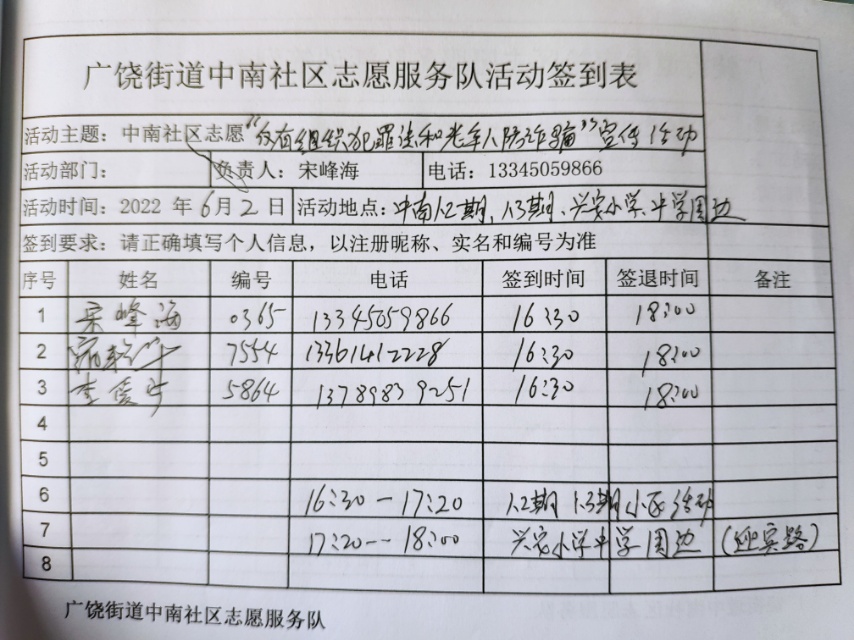 广饶街道中南社区志愿服务队活动签到表
活动主题：中南社区志愿“反有组织犯罪法和老年人防诈骗”宣传活动
活动部门： 负责人：宋峰海 电话：13345059866
活动时间：2022 年 6月 2 日 活动地点：中南1.2期、1.3期、兴安小学、中学周边
签到要求：请正确填写个人信息，以注册昵称、实名和编号为准
序号 姓名 编号 电话 签到时间 签退时间 备注
1 宋峰海 0365 13345059866 16:30 18:00
2 7554 13361412228 16:30 18:00
3 5864 13789839251 16:30 18:00
4
5
6 16:30—17:20 1.2期 1.3期小区活动
7 17:20--18:00 兴安小学中学周边 (迎宾路)
8
广饶街道中南社区志愿服务队